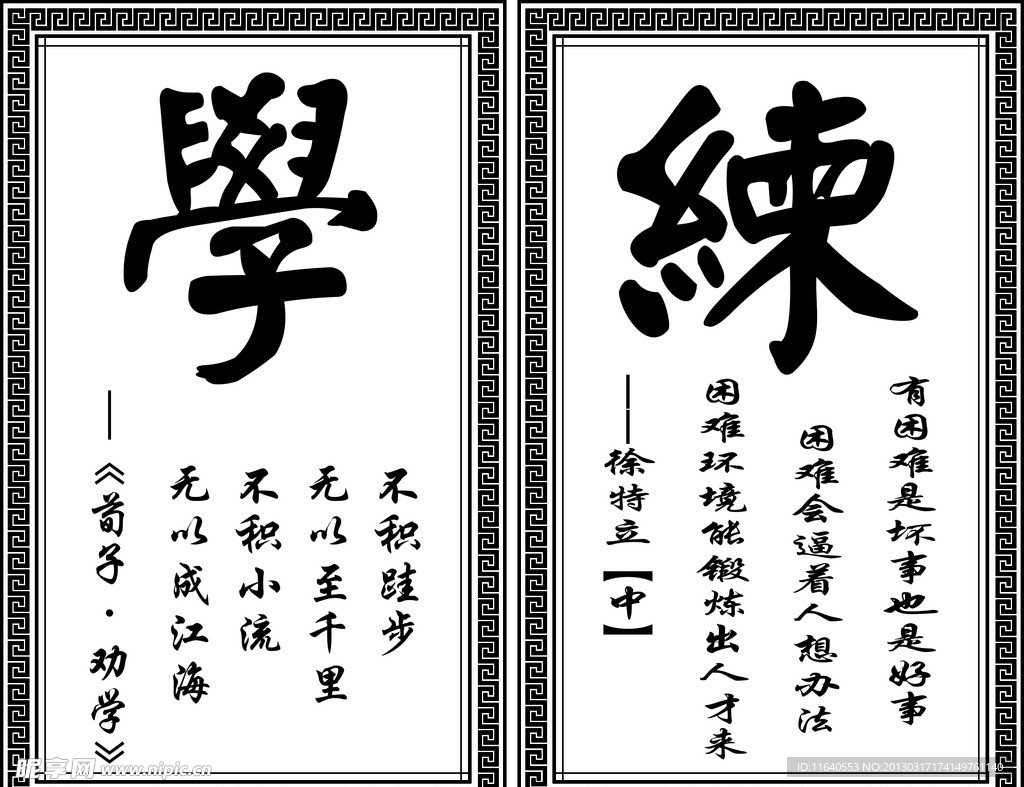 學
不积跬步
无以至千里
不积小流
无以成江海
——《荀子·劝学》
練
有困难是坏事也是好事
困难会逼着人想办法
困难环境能锻炼出人才来
——徐特立【中】
昵享网 www.nipic.cn
ID:11640553 NO:20130317174149761140